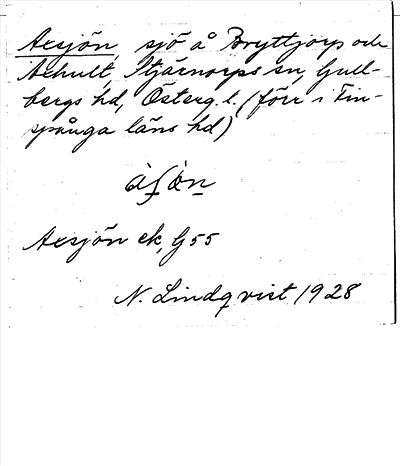 Axsjön, sjö å Bryttjorp och
Axhult, Stjärnorps sn, Gull-
bergs hd, Österg. l. (förr i Fin-
spånga läns hd)
àʃòn
Axsjön ek, G 55
N. Lindqvist 1928